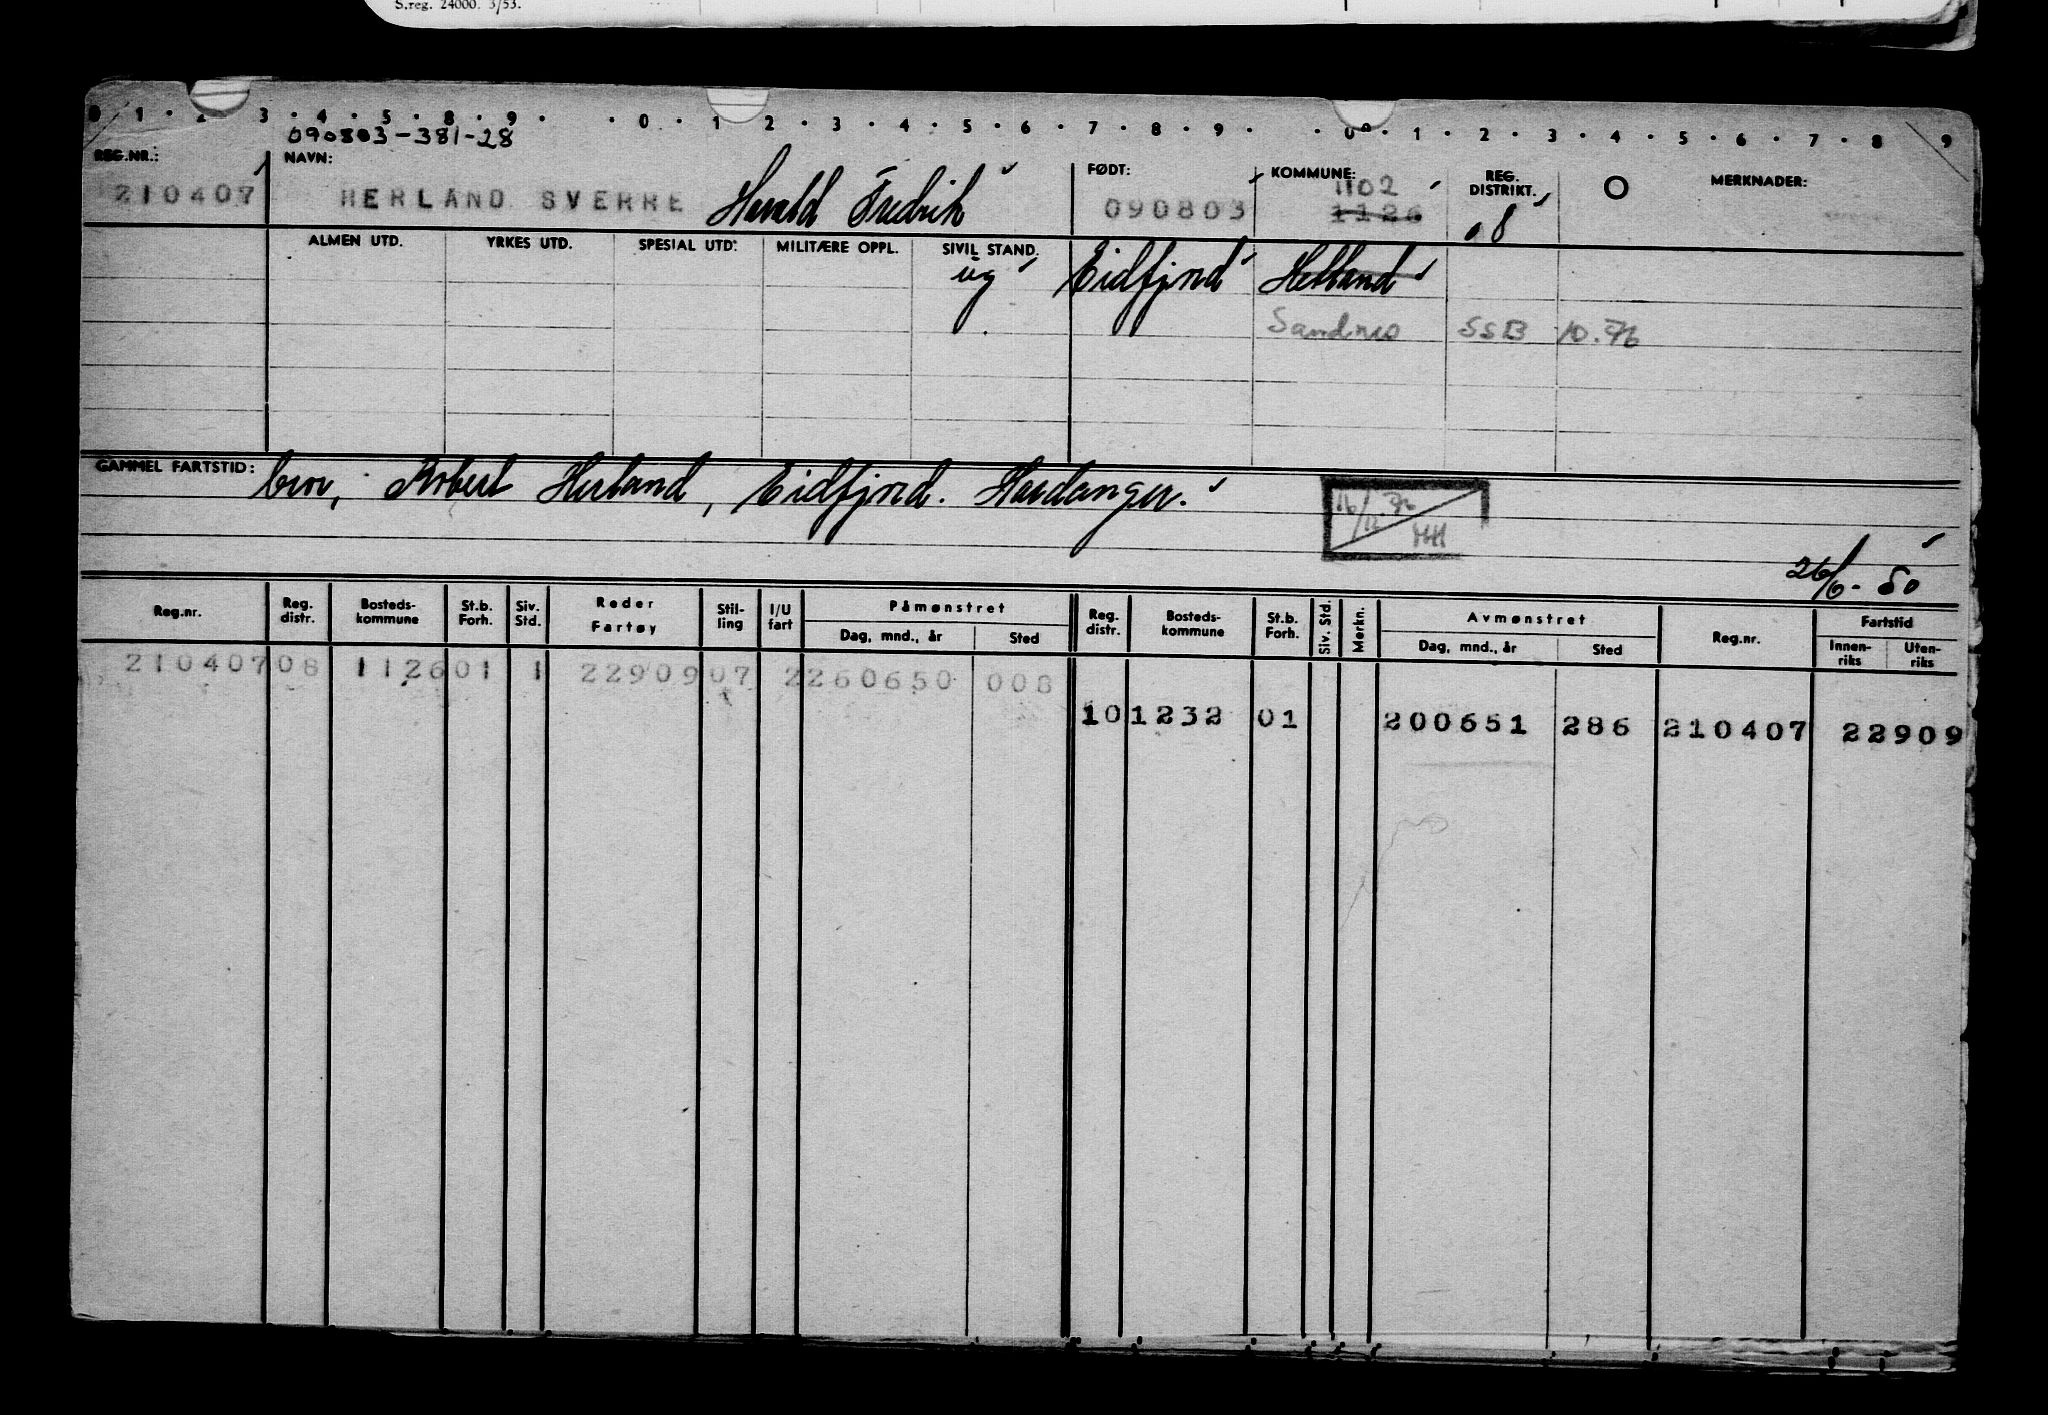 S.reg. 24000. 3/53.
0 1 2 3 4 5 8 9 0 1 2 3 4 5 6 7 8 9 0 1 2 3 4 5 6 7 8 9
090803-381-28
REG.NR.: NAVN: FØDT: KOMMUNE: REG. DISTRIKT. MERKNADER:
1102
210407 HERLAND SVERRE Harald Fredrik 090803 1126 08
ALMEN UTD. YRKES UTD. SPESIAL UTD. MILITÆRE OPPL. SIVIL STAND.
ug Eidfjord Hetland
Sandnes SSB 10.76
GAMMEL FARTSTID: bror, Robert Herland, Eidfjord. Hardanger.
16/11.76 HH
26/6-50
Reg.nr. Reg. distr. Bosteds-kommune St.b. Forh. Siv. Std. Reder Fartøy Stil-ling I/U fart Påmønstret Reg. distr. Bosteds-kommune St.b. Forh. Siv. Std. Merkn. Avmønstret Reg.nr. Fartstid
Dag, mnd., år Sted Dag, mnd., år Sted Innen-riks Uten-riks
210407 08 1126 01 1 22909 07 2 260650 008
10 1232 01 200651 286 210407 22909